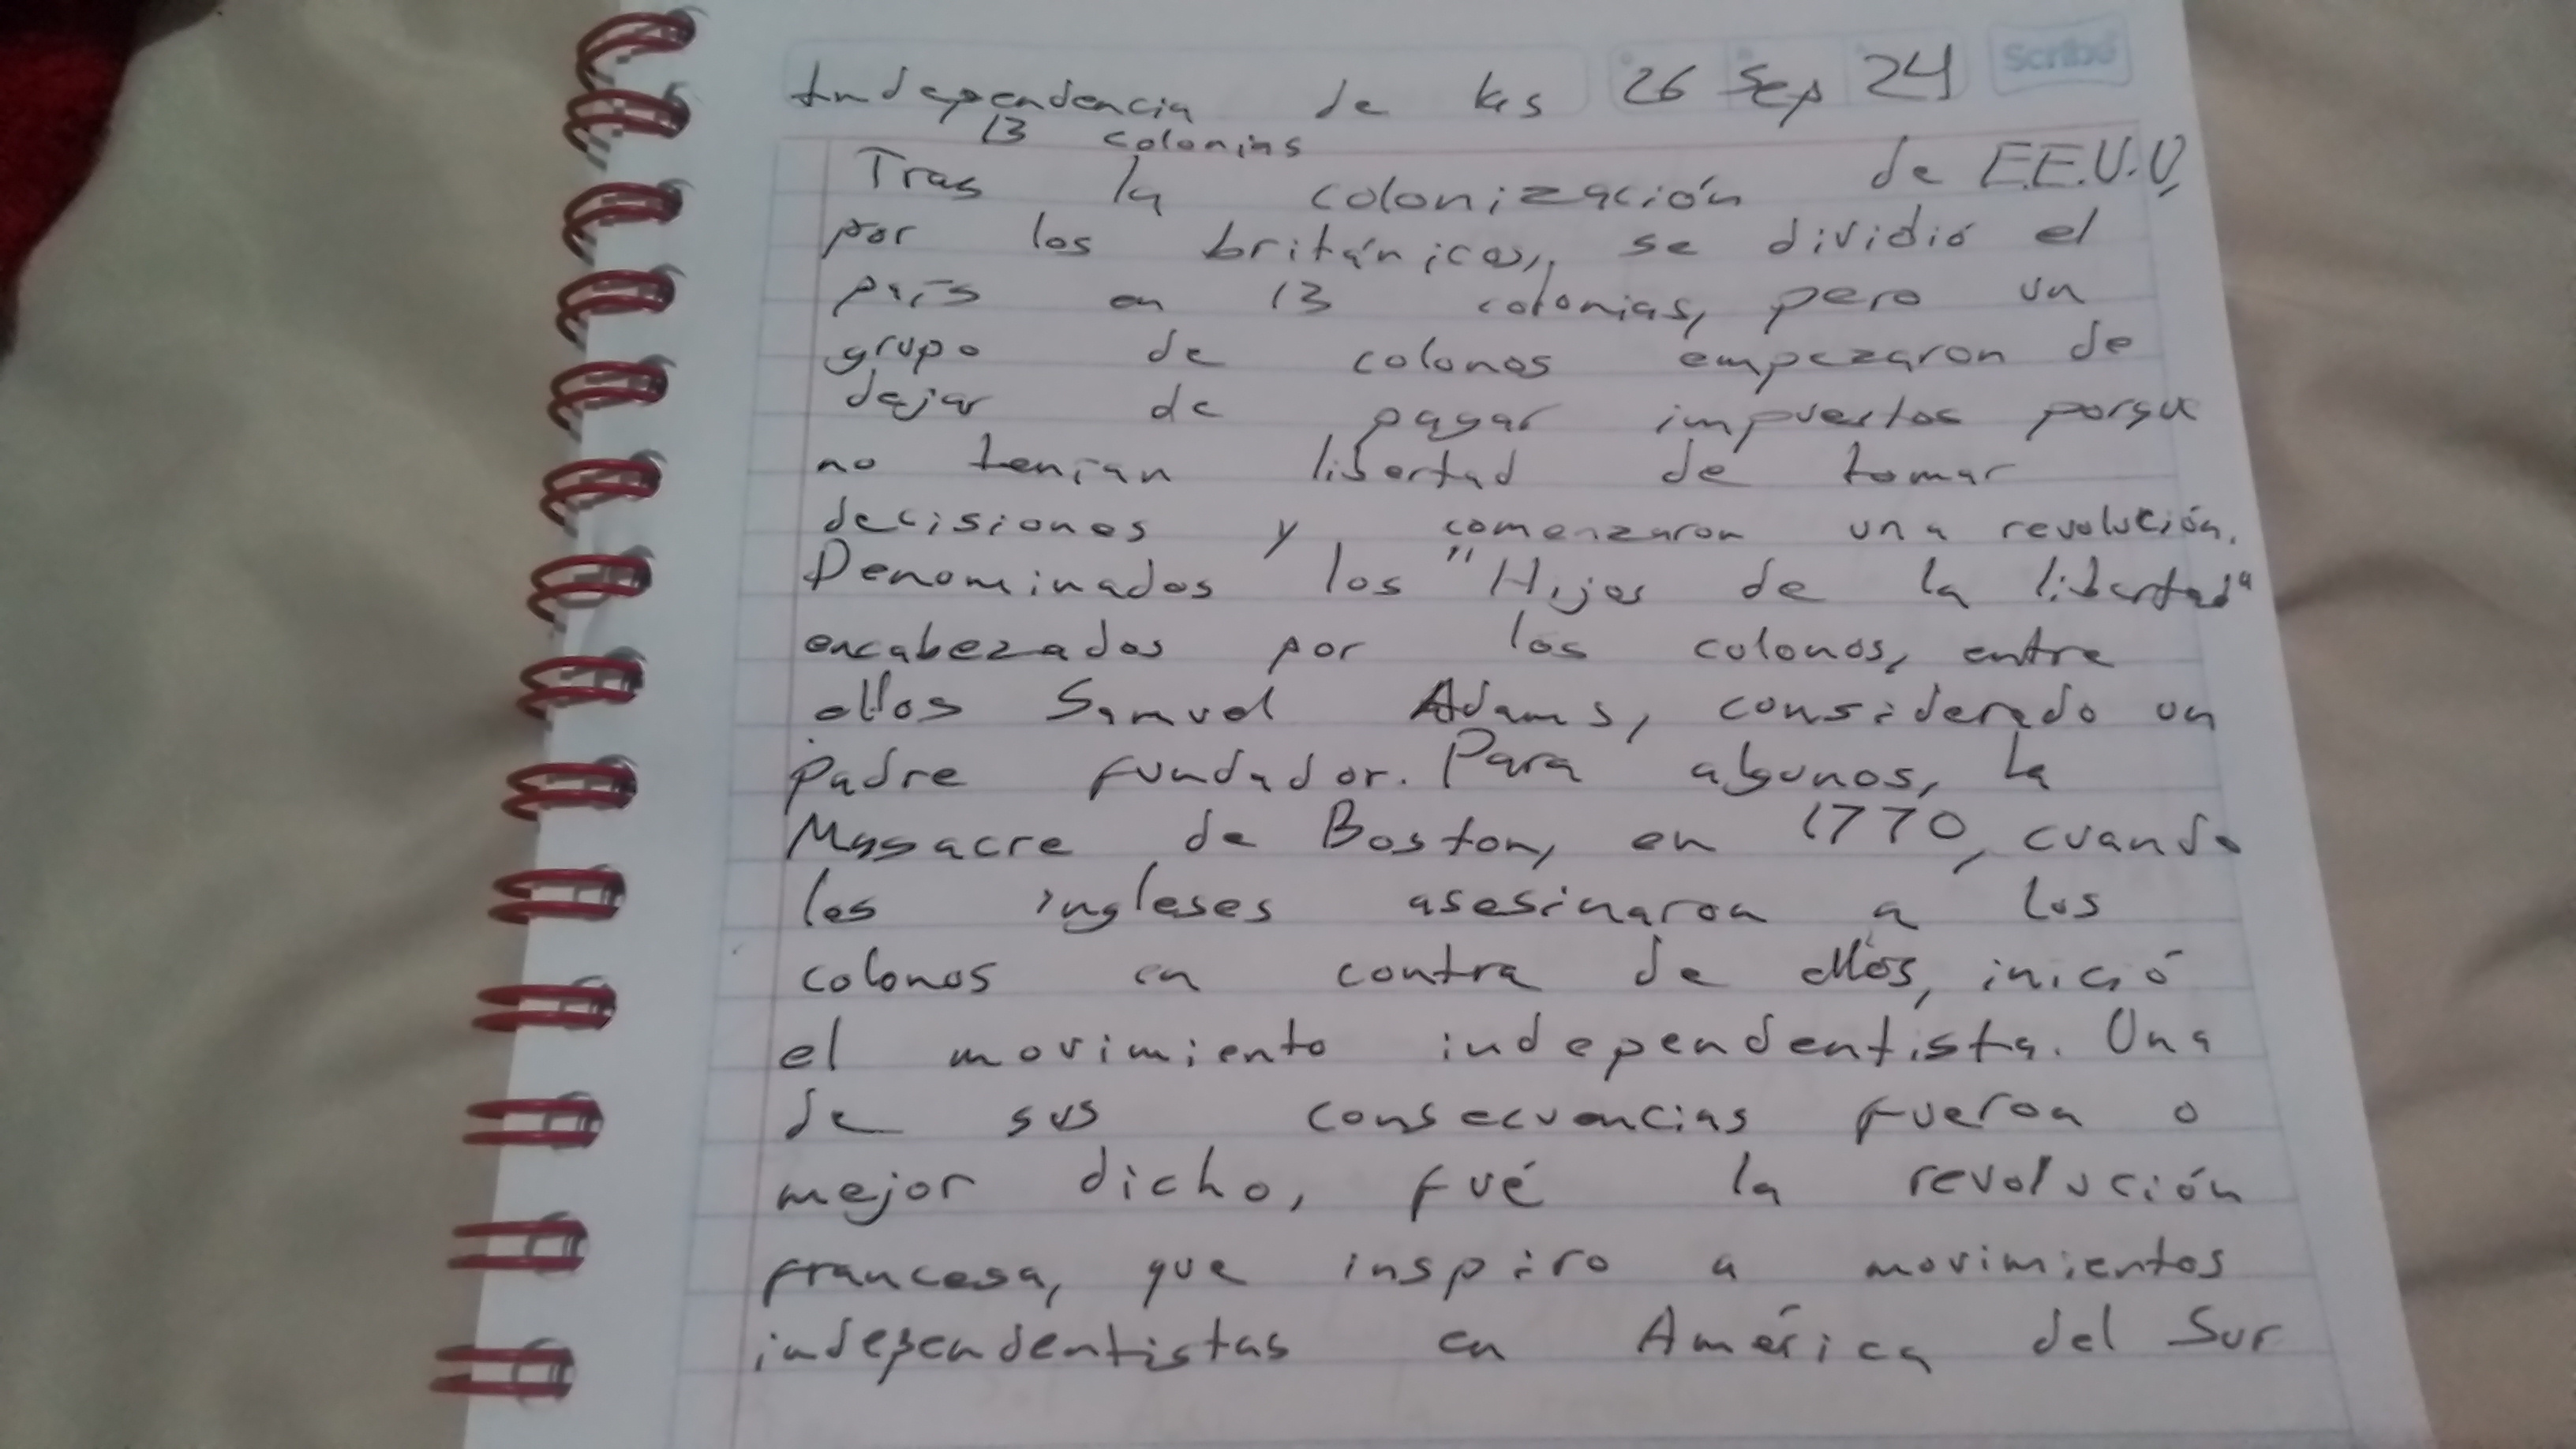 Independencia de las 26 Sep 24 Scribe
13 colonias
Tras la colonización de E.E.U.U,
por los británicos, se dividió el
país en 13 colonias, pero un
grupo de colonos empezaron de
dejar de pagar impuestos porque
no tenían libertad de tomar
decisiones y comenzaron una revolución.
Denominados los "Hijos de la libertad"
encabezados por los colonos, entre
ellos Samuel Adams, considerado un
padre fundador. Para algunos, la
Masacre de Boston, en 1770, cuando
los ingleses asesinaron a los
colonos en contra de ellos, inició
el movimiento independentista. Una
de sus consecuencias fueron o
mejor dicho, fué la revolución
francesa, que inspiro a movimientos
independentistas en América del Sur